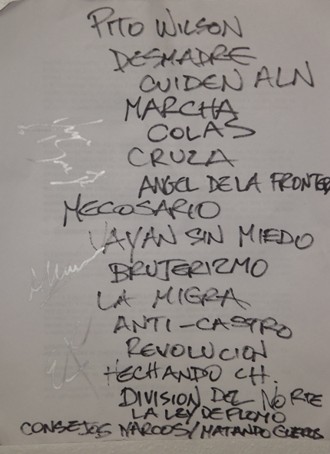 PITO WILSON
DESMADRE
CUIDEN ALN
MARCHA
COLAS
CRUZA
ANGEL DE LA FRONTER
MECOSARIO
VAYAN SIN MIEDO
BRUJERIZMO
LA MIGRA
ANTI-CASTRO
REVOLUCION
HECHANDO CH.
DIVISION DEL NORTE
LA LEY DE PLOMO
CONSEJOS NARCOS/MATANDO GUEROS